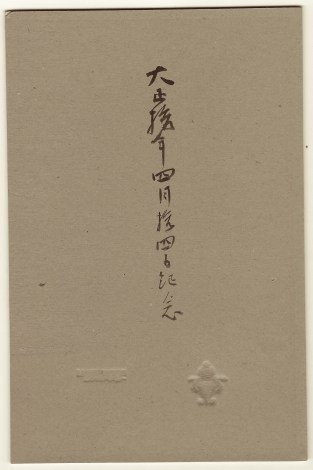 大正拾年四月拾四日紀念